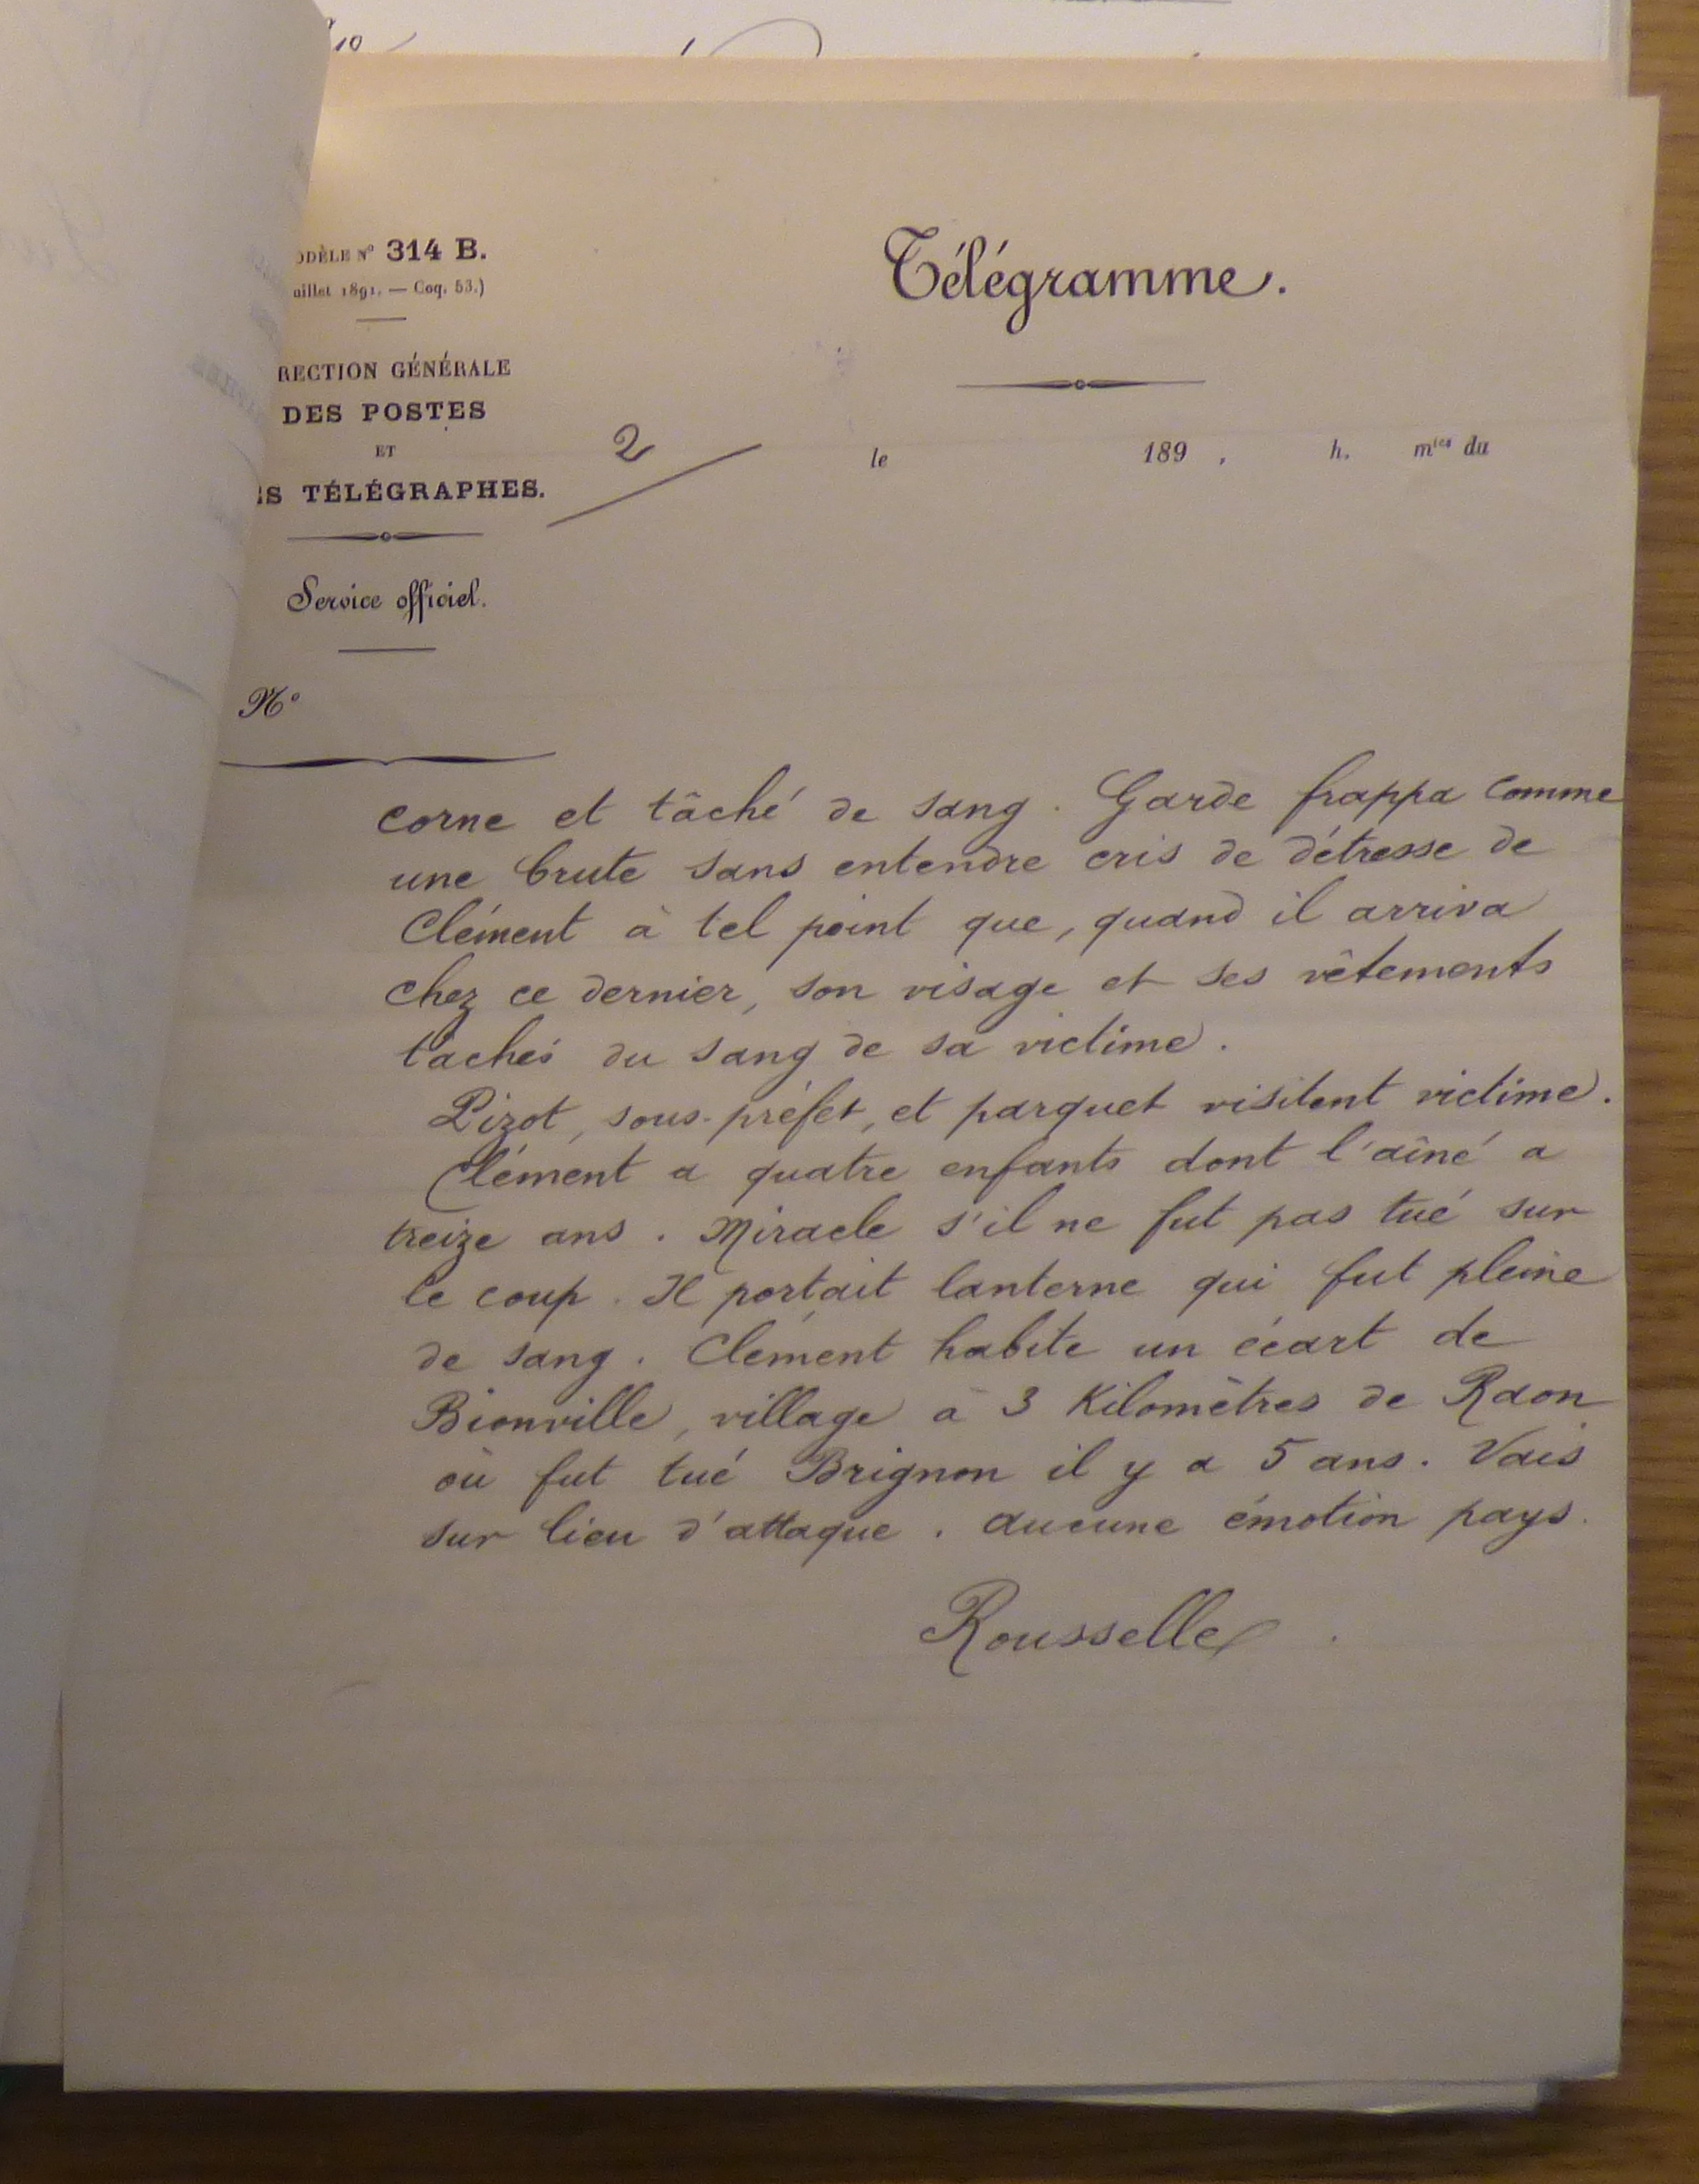 10
ODÈLE N° 314 B.
uillet 1891. — Coq. 53.)
RECTION GÉNÉRALE
DES POSTES
ET
ES TÉLÉGRAPHES.
Service officiel.
N°
Télégramme.
2
le 189 , h. mtes du
corne et tâché de sang. Garde frappa comme
une brute sans entendre cris de détresse de
Clément à tel point que, quand il arriva
chez ce dernier, son visage et ses vêtements
tachés du sang de sa victime.
Pizot, sous-préfet, et parquet visitent victime.
Clément a quatre enfants dont l'aîné a
treize ans. Miracle s'il ne fut pas tué sur
le coup. Il portait lanterne qui fut pleine
de sang. Clément habite un écart de
Bionville, village à 3 Kilomètres de Raon
où fut tué Brignon il y a 5 ans. Vais
sur lieu d'attaque. aucune émotion pays.
Rousselle